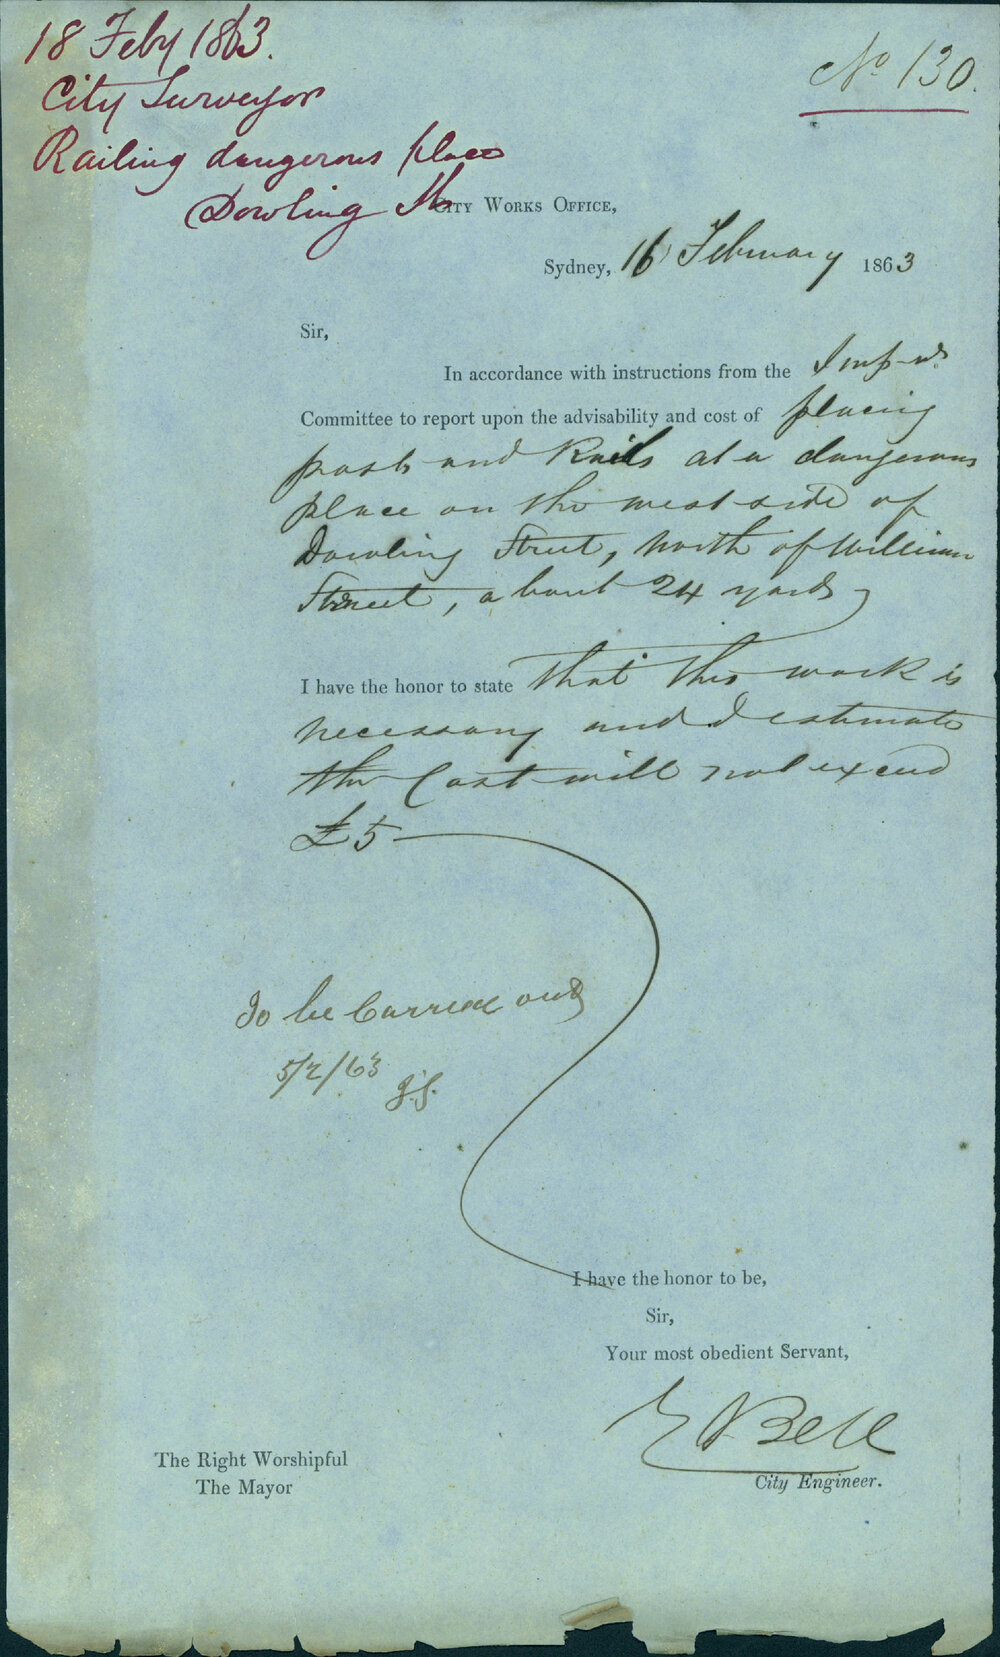 18 Feby 1863.
City Surveyor
Railing dangerous place
Dowling St
No 130.
City Works Office,
Sydney, 16 February 1863
Sir,
In accordance with instructions from the Imp-ts
Committee to report upon the advisability and cost of placing
posts and Rails at a dangerous
place on the west side of
Dowling Street, North of William
Street, about 24 yards
I have the honor to state that this work is
necessary and I estimate
the Cost will not exceed
£5
To be Carried out
5/2/63
J.S.
I have the honor to be,
Sir,
Your most obedient Servant,
E Bell
City Engineer.
The Right Worshipful
The Mayor